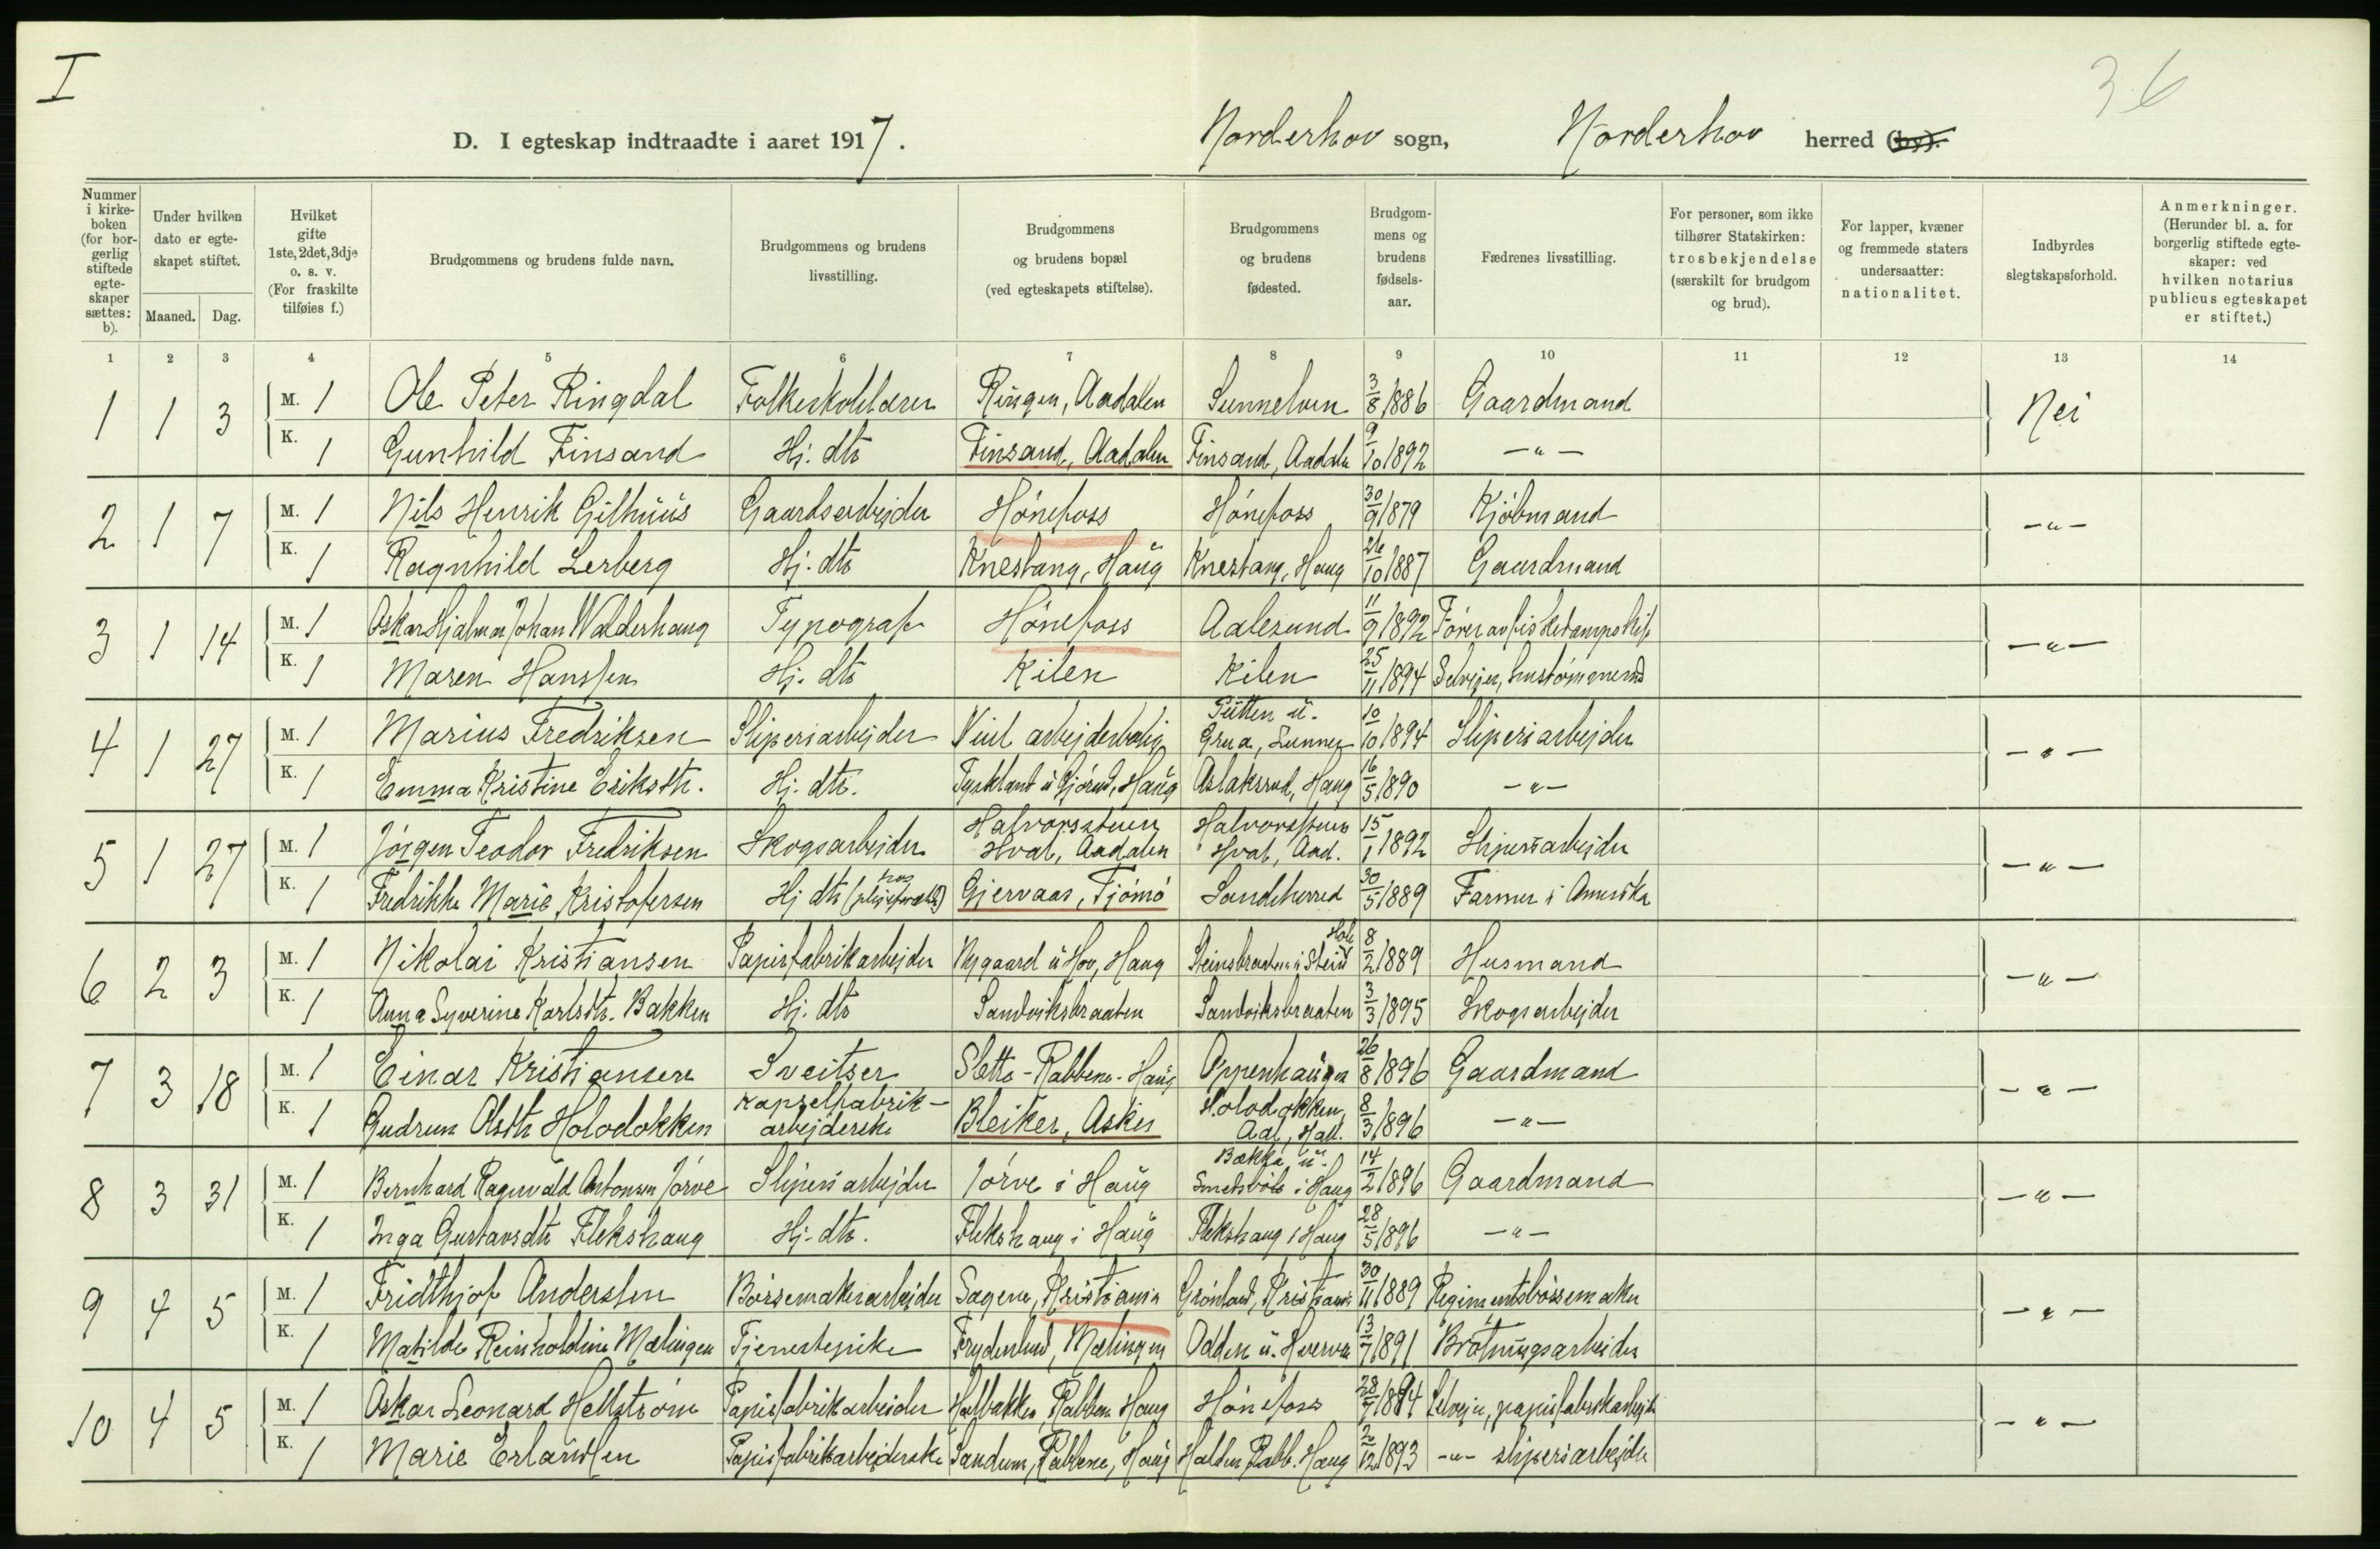 I
36
D. I egteskap indtraadte i aaret 1917. Norderhov sogn, Norderhov herred (by).
Nummer i kirkeboken (for borgerlig stiftede egteskaper sættes: b).
Under hvilken dato er egteskapet stiftet.
Maaned. Dag.
Hvilket gifte 1ste, 2det, 3dje o. s. v. (For fraskilte tilføies f.)
Brudgommens og brudens fulde navn.
Brudgommens og brudens livsstilling.
Brudgommens og brudens bopæl (ved egteskapets stiftelse).
Brudgommens og brudens fødested.
Brudgommens og brudens fødselsaar.
Fædrenes livsstilling.
For personer, som ikke tilhører Statskirken: trosbekjendelse (særskilt for brudgom og brud).
For lapper, kvæner og fremmede staters undersaatter: nationalitet.
Indbyrdes slegtskapsforhold.
Anmerkninger. (Herunder bl. a. for borgerlig stiftede egteskaper: ved hvilken notarius publicus egteskapet er stiftet.)
1 2 3 4 5 6 7 8 9 10 11 12 13 14
1 1 3 M. 1 Ole Peter Ringdal Folkeskolelærer Ringen, Aadalen Sunnelven 3/8 1886 Gaardmand Nei
K. 1 Gunhild Finsand Hj. dtr Finsand, Aadalen Finsand, Aadalen 9/10 1892 -"-
2 1 7 M. 1 Nils Henrik Gilhuus Gaardsarbejder Hönefoss Hönefoss 30/9 1879 Kjöbmand -"-
K. 1 Ragnhild Lerberg Hj. dtr Knestang, Haug Knestang, Haug 26/10 1887 Gaardmand
3 1 14 M. 1 Oskar Hjalmar Johan Walderhaug Typograf Hönefoss Aalesund 11/9 1892 Förer av fiskedampskib -"-
K. 1 Maren Hanssen Hj. dtr Kilen Kilen 25/11 1894 Selvejer, hustömmermd
4 1 27 M. 1 Marius Fredriksen Sliperiarbejder Viul arbejderbolig Putten u. Grua, Lunner 10/10 1894 Sliperiarbejder -"-
K. 1 Emma Kristine Eriksdtr. Hj. dtr. Tyskland u Gjörud, Haug Aslaksrud, Haug 16/5 1890 -"-
5 1 27 M. 1 Jörgen Teodor Fredriksen Skogsarbejder Halvorsstuen Hval, Aadalen Halvorsstuen Hval, Aad. 15/1 1892 Sliperiarbejder -"-
K. 1 Fredrikke Marie Kristofersen Hj dtr (hos plejeforældr) Gjervaas, Tjömö Sandeherred 30/5 1889 Farmer i Amerika
6 2 3 M. 1 Nikolai Kristiansen Papirfabrikarbejder Nygaard u Hov, Haug Steinsbraaten u Stein Hole 8/2 1889 Husmand -"-
K. 1 Anna Syverine Karlsdtr. Bakken Hj. dtr Sandviksbraaten Sandviksbraaten 3/3 1895 Skogsarbejder
7 3 18 M. 1 Einar Kristiansen Sveitser Sletta - Rabbene - Haug Oppenhaugen 26/8 1896 Gaardmand -"-
K. 1 Gudrun Olsdtr Holodokken Kapselfabrik-arbejderske Bleiker, Asker Holodokken, Aal, Hall. 8/3 1896 -"-
8 3 31 M. 1 Bernhard Ragnvald Antonsen Jörve Sliperiarbejder Jörve i Haug Bakke u. Smedsböle i Haug 14/2 1896 Gaardmand -"-
K. 1 Inga Gustavsdtr Flekshaug Hj. dtr. Flekshaug i Haug Flekshaug i Haug 28/5 1896 -"-
9 4 5 M. 1 Fridthjof Anderssen Börsemakerarbejder Sagene, Kristiania Grönland, Kristiania 30/11 1889 Regimentsbössemaker -"-
K. 1 Matilde Reinholdine Mælingen Tjenestepike Frydenlund, Mælingen Odden u. Hverven 13/7 1891 Brötningsarbeider
10 4 5 M. 1 Oskar Leonard Hellström Papirfabrikarbeider Halbakken, Rabben Haug Hönefoss 28/7 1894 Selvejer, papirfabrikarbejd. -"-
K. 1 Marie Erlandsen Papirfabrikarbejderske Sandum, Rabbene, Haug Halden Rabb. Haug 20/12 1893 -"- sliperiarbejder